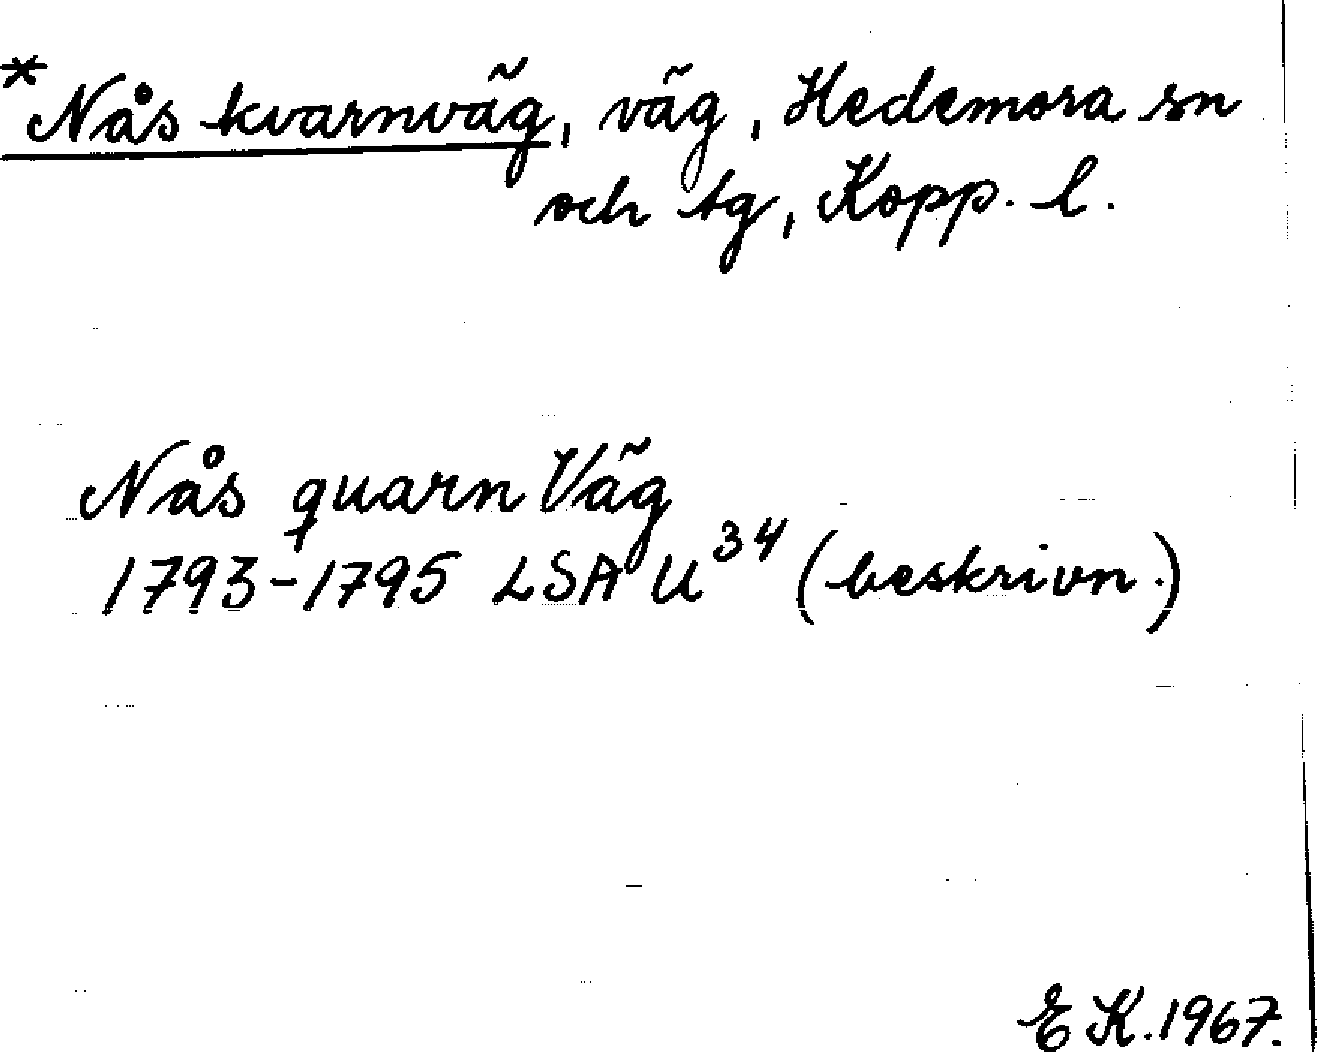 *Nås kvarnväg, väg, Hedemora sn
och tg, Kopp. l.
Nås quarn Väg
1793-1795 LSA U³⁴ (beskrivn.)
E K. 1967.